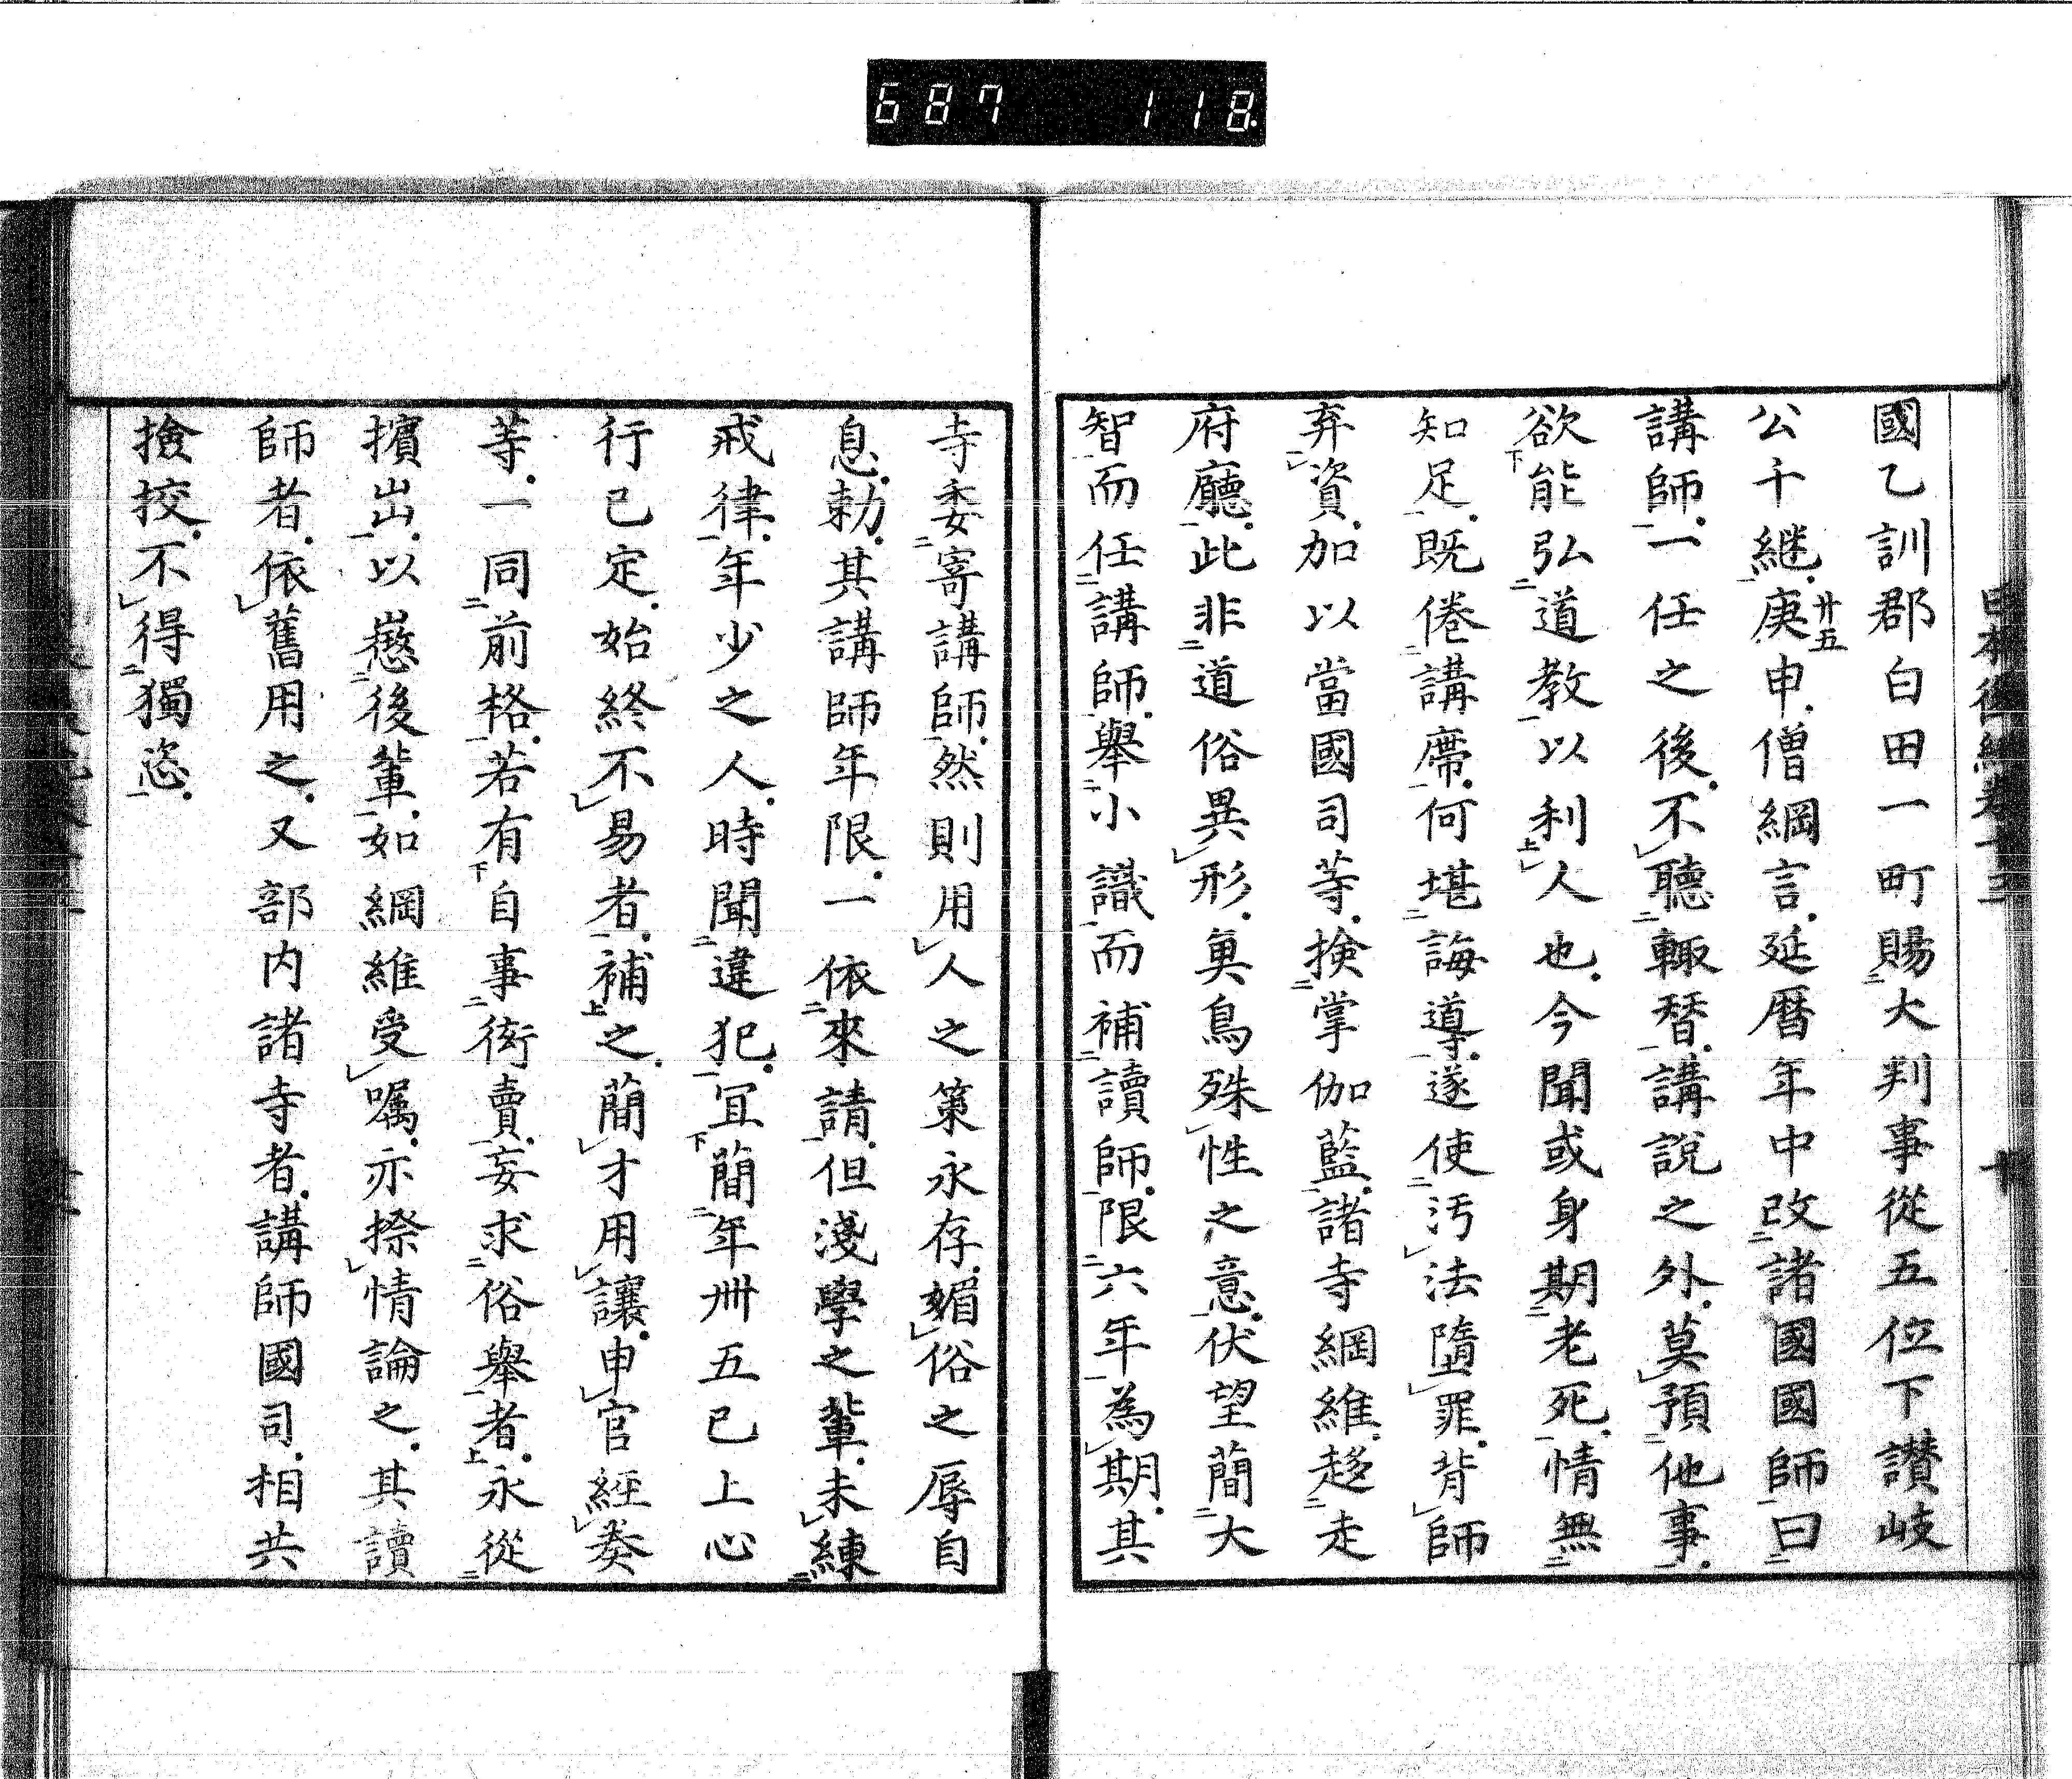 687 118
日本後紀卷十二 十
國乙訓郡白田一町賜大判事從五位下讃岐
公千継庚申僧綱言延暦年中改諸國國師曰
廿五
講師一任之後不聽輙替講說之外莫預他事
欲能弘道教以利人也今聞或身期老死情無
知足既倦講席何堪誨導遂使汚法墮罪背師
弃資加以當國司等撿掌伽藍諸寺綱維趍走
府廳此非道俗異形奧鳥殊性之意伏望簡大
智而任講師舉小識而補讀師限六年為期其
寺委寄講師然則用人之策永存媚俗之辱自
息勅其講師年限一依來請但淺學之輩未練
戒律年少之人時聞違犯冝簡年卌五已上心
行已定始終不易者補之簡才用讓申官經奏
等一同前格若有自事衒賣妄求俗舉者永從
擯出以懲後輩如綱維受囑亦捺情論之其讀
師者依舊用之又部内諸寺者講師國司相共
撿挍不得獨恣